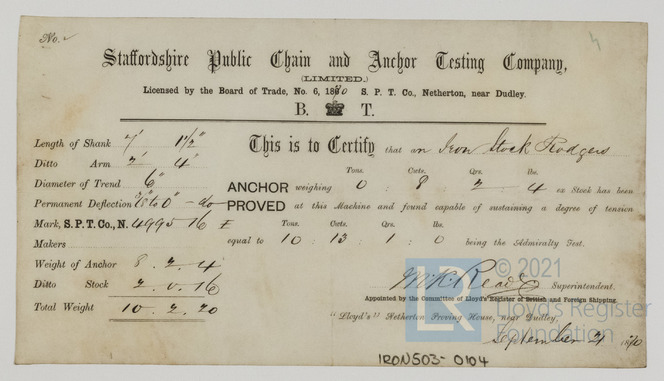 No.
Staffordshire Public Chain and Anchor Testing Company,
(LIMITED.)
Licensed by the Board of Trade, No. 6, 1870 S. P. T. Co., Netherton, near Dudley.
B. T.
Length of Shank 7' 1 1/2"
Ditto Arm 2' 4"
Diameter of Trend 6"
Permanent Deflection to 0" do
Mark, S. P. T. Co., N. 4995-16
Makers
Weight of Anchor 8 . 2 . 4
Ditto Stock 2 . 0 . 16
Total Weight 10 . 2 . 20
This is to Certify that an Iron Stock Rodgers
Tons. Cwts. Qrs. lbs.
ANCHOR weighing 0 : 8 : 2 : 4 ex Stock has been
PROVED at this Machine and found capable of sustaining a degree of tension
Tons. Cwts. Qrs. lbs.
equal to 10 : 13 : 1 : 0 being the Admiralty Test.
Superintendent.
Appointed by the Committee of Lloyd's Register of British and Foreign Shipping.
"Lloyd's" Netherton Proving House, near Dudley,
September 21 1870
IRON503-0104
LR
© 2021
Lloyd's Register
Foundation